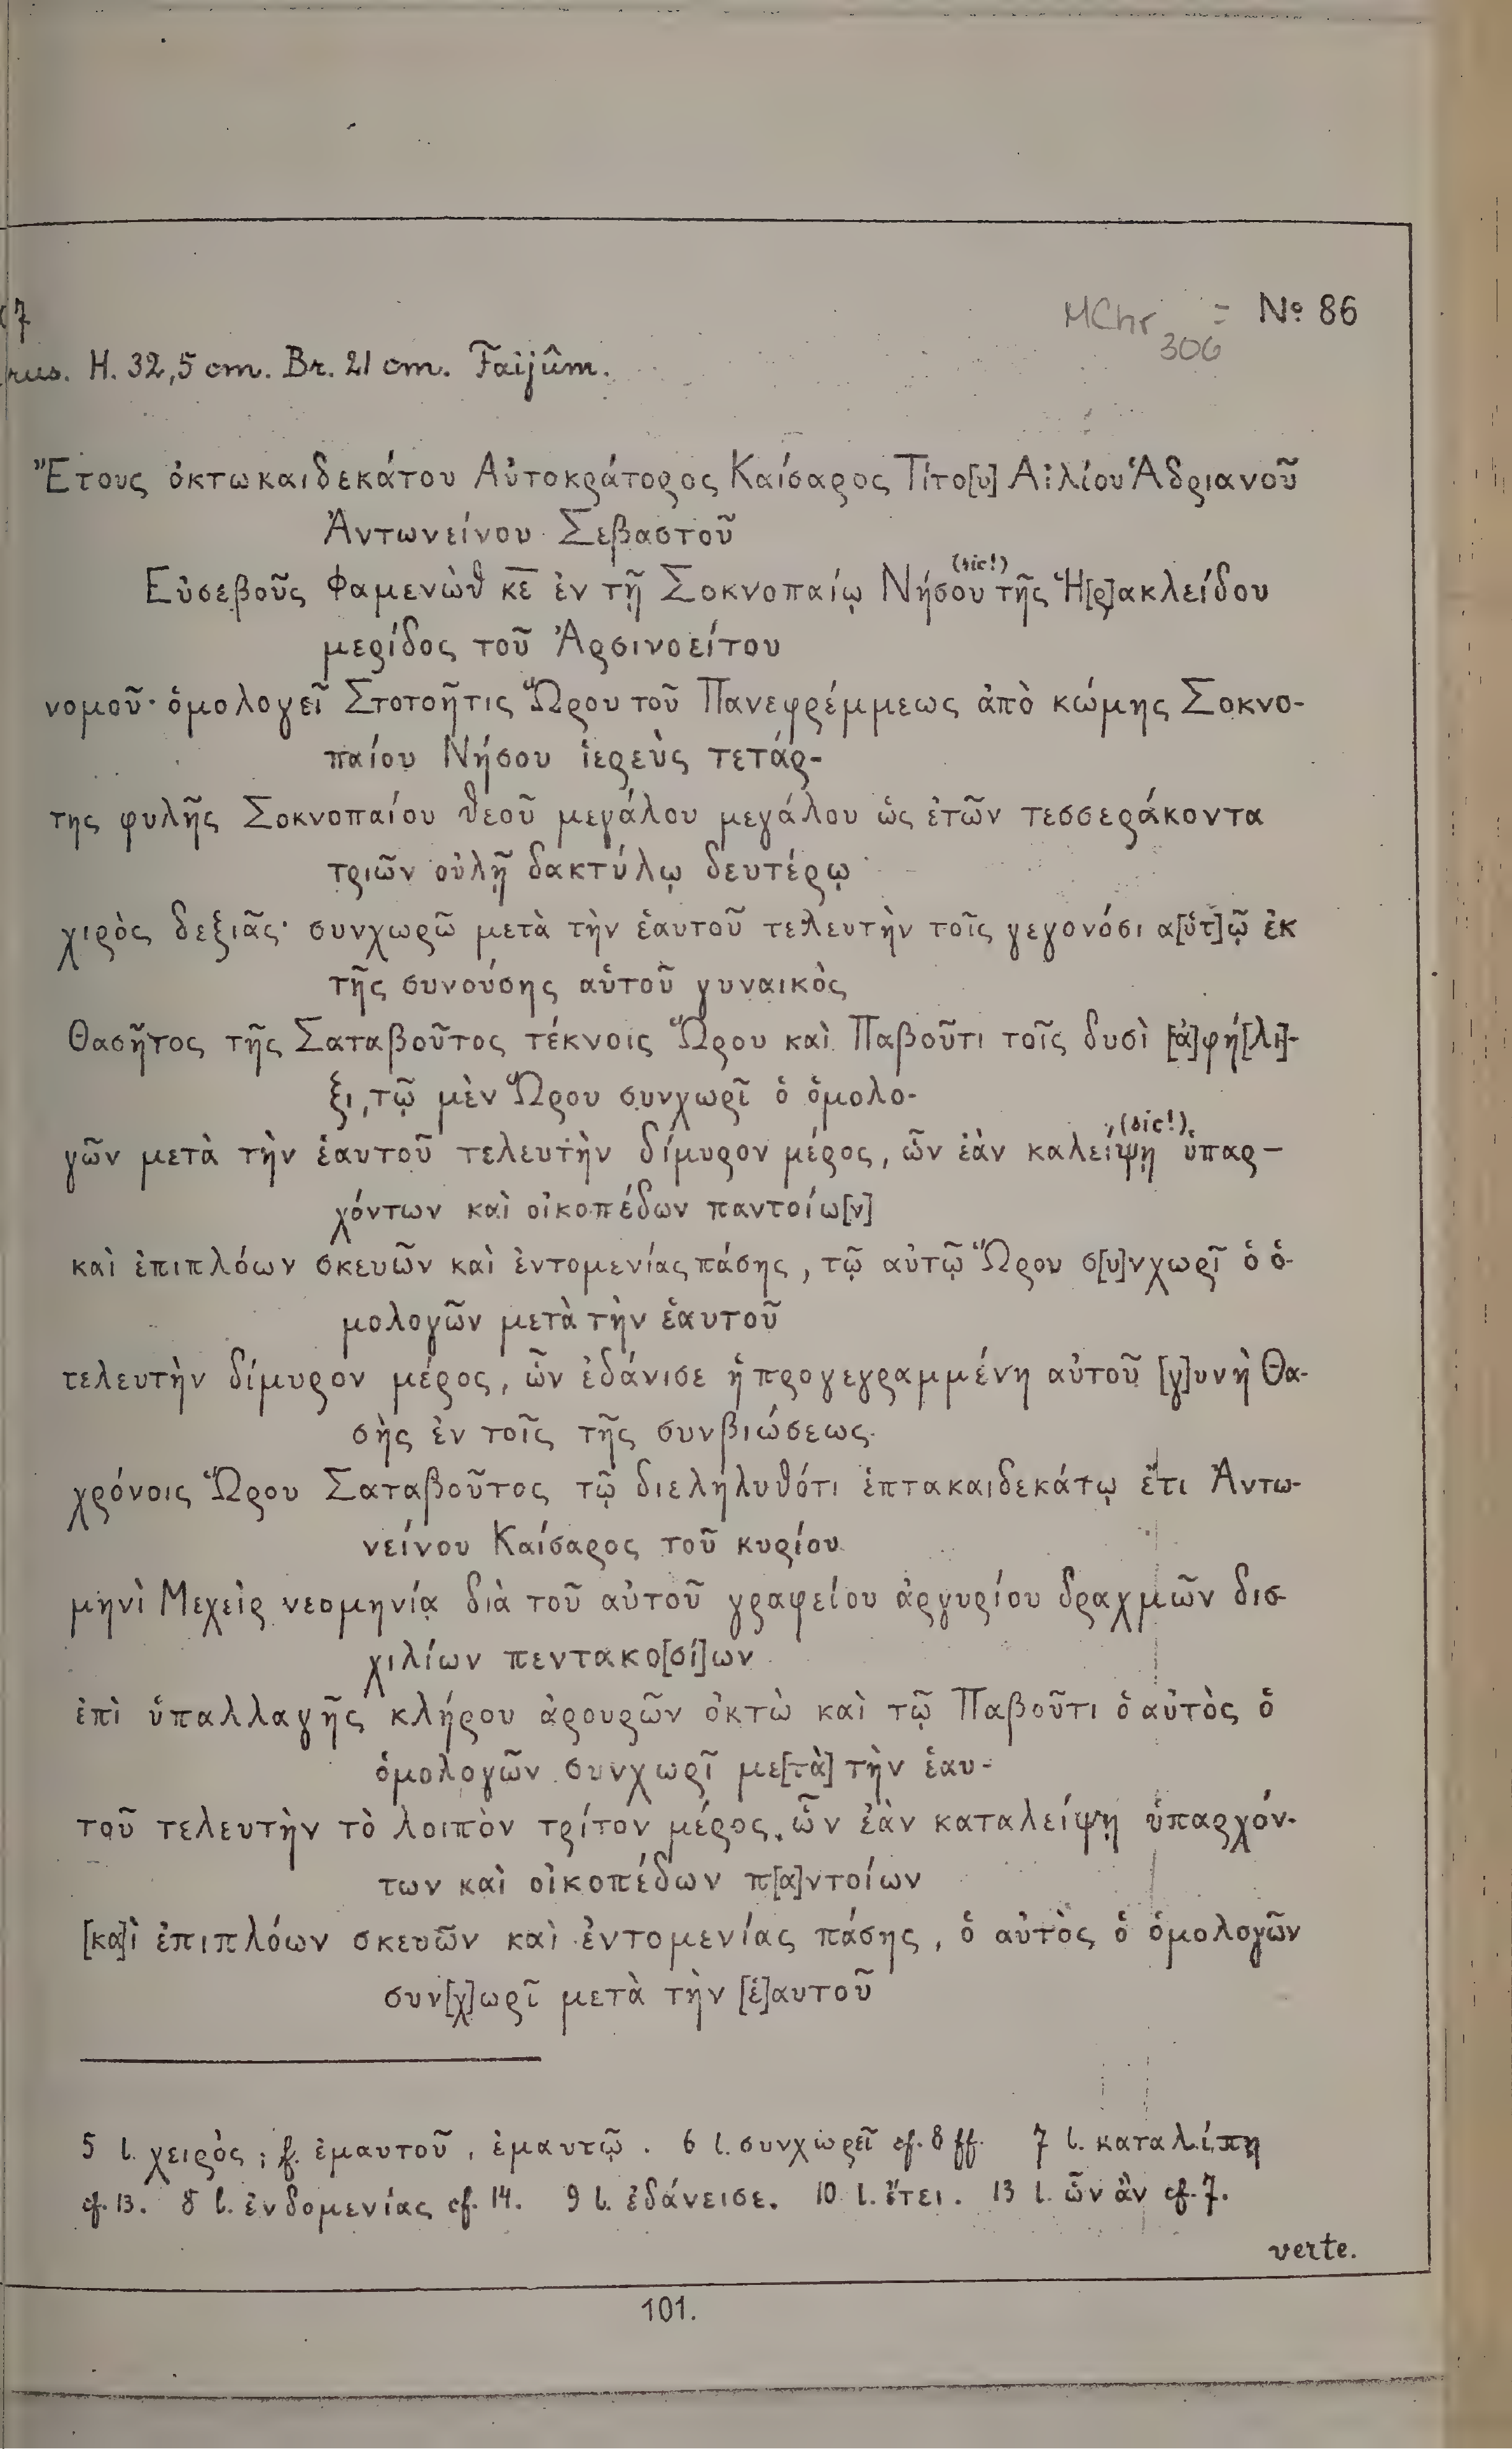 7
MChr = № 86
306
rus. H. 32,5 cm. Br. 21 cm. Faijûm.
Ἔτους ὀκτωκαιδεκάτου Αὐτοκράτορος Καίσαρος Τίτο[υ] Αἰλίου Ἁδριανοῦ
Ἀντωνείνου Σεβαστοῦ
(sic!)
Εὐσεβοῦς Φαμενὼθ κ̅ε̅ ἐν τῇ Σοκνοπαίῳ Νήσου τῆς Ἡ[ρ]ακλείδου
μερίδος τοῦ Ἀρσινοείτου
νομοῦ· ὁμολογεῖ Στοτοῆτις Ὥρου τοῦ Πανεφρέμμεως ἀπὸ κώμης Σοκνο-
παίου Νήσου ἱερεὺς τετάρ-
της φυλῆς Σοκνοπαίου θεοῦ μεγάλου μεγάλου ὡς ἐτῶν τεσσεράκοντα
τριῶν οὐλῇ δακτύλῳ δευτέρῳ
χιρὸς δεξιᾶς· συνχωρῶ μετὰ τὴν ἑαυτοῦ τελευτὴν τοῖς γεγονόσι α[ὑτ]ῷ ἐκ
τῆς συνούσης αὐτοῦ γυναικὸς
Θασῆτος τῆς Σαταβοῦτος τέκνοις Ὥρου καὶ Παβοῦτι τοῖς δυσὶ [ἀ]φή[λι]-
ξι, τῷ μὲν Ὥρου συνχωρῖ ὁ ὁμολο-
(sic!)
γῶν μετὰ τὴν ἑαυτοῦ τελευτὴν δίμυρον μέρος, ὧν ἐὰν καλείψῃ ὑπαρ-
χόντων καὶ οἰκοπέδων παντοίω[ν]
καὶ ἐπιπλόων σκευῶν καὶ ἐντομενίας πάσης, τῷ αὐτῷ Ὥρου σ[υ]νχωρῖ ὁ ὁ-
μολογῶν μετὰ τὴν ἑαυτοῦ
τελευτὴν δίμυρον μέρος, ὧν ἐδάνισε ἡ προγεγραμμένη αὐτοῦ [γ]υνὴ Θα-
σῆς ἐν τοῖς τῆς συνβιώσεως
χρόνοις Ὥρου Σαταβοῦτος τῷ διεληλυθότι ἑπτακαιδεκάτῳ ἔτι Ἀντω-
νείνου Καίσαρος τοῦ κυρίου
μηνὶ Μεχεὶρ νεομηνίᾳ διὰ τοῦ αὐτοῦ γραφείου ἀργυρίου δραχμῶν δισ-
χιλίων πεντακο[σί]ων
ἐπὶ ὑπαλλαγῆς κλήρου ἀρουρῶν ὀκτὼ καὶ τῷ Παβοῦτι ὁ αὐτὸς ὁ
ὁμολογῶν συνχωρῖ με[τὰ] τὴν ἑαυ-
τοῦ τελευτὴν τὸ λοιπὸν τρίτον μέρος, ὧν ἐὰν καταλείψῃ ὑπαρχόν-
των καὶ οἰκοπέδων π[α]ντοίων
[κα]ὶ ἐπιπλόων σκευῶν καὶ ἐντομενίας πάσης, ὁ αὐτὸς ὁ ὁμολογῶν
συν[χ]ωρῖ μετὰ τὴν [ἑ]αυτοῦ
5 l. χειρὸς; f. ἐμαυτοῦ, ἐμαυτῷ. 6 l. συνχωρεῖ cf. 8 ff. 7 l. καταλίπῃ
cf. 13. 8 l. ἐνδομενίας cf. 14. 9 l. ἐδάνεισε. 10 l. ἔτει. 13 l. ὧν ἂν cf. 7.
verte.
101.